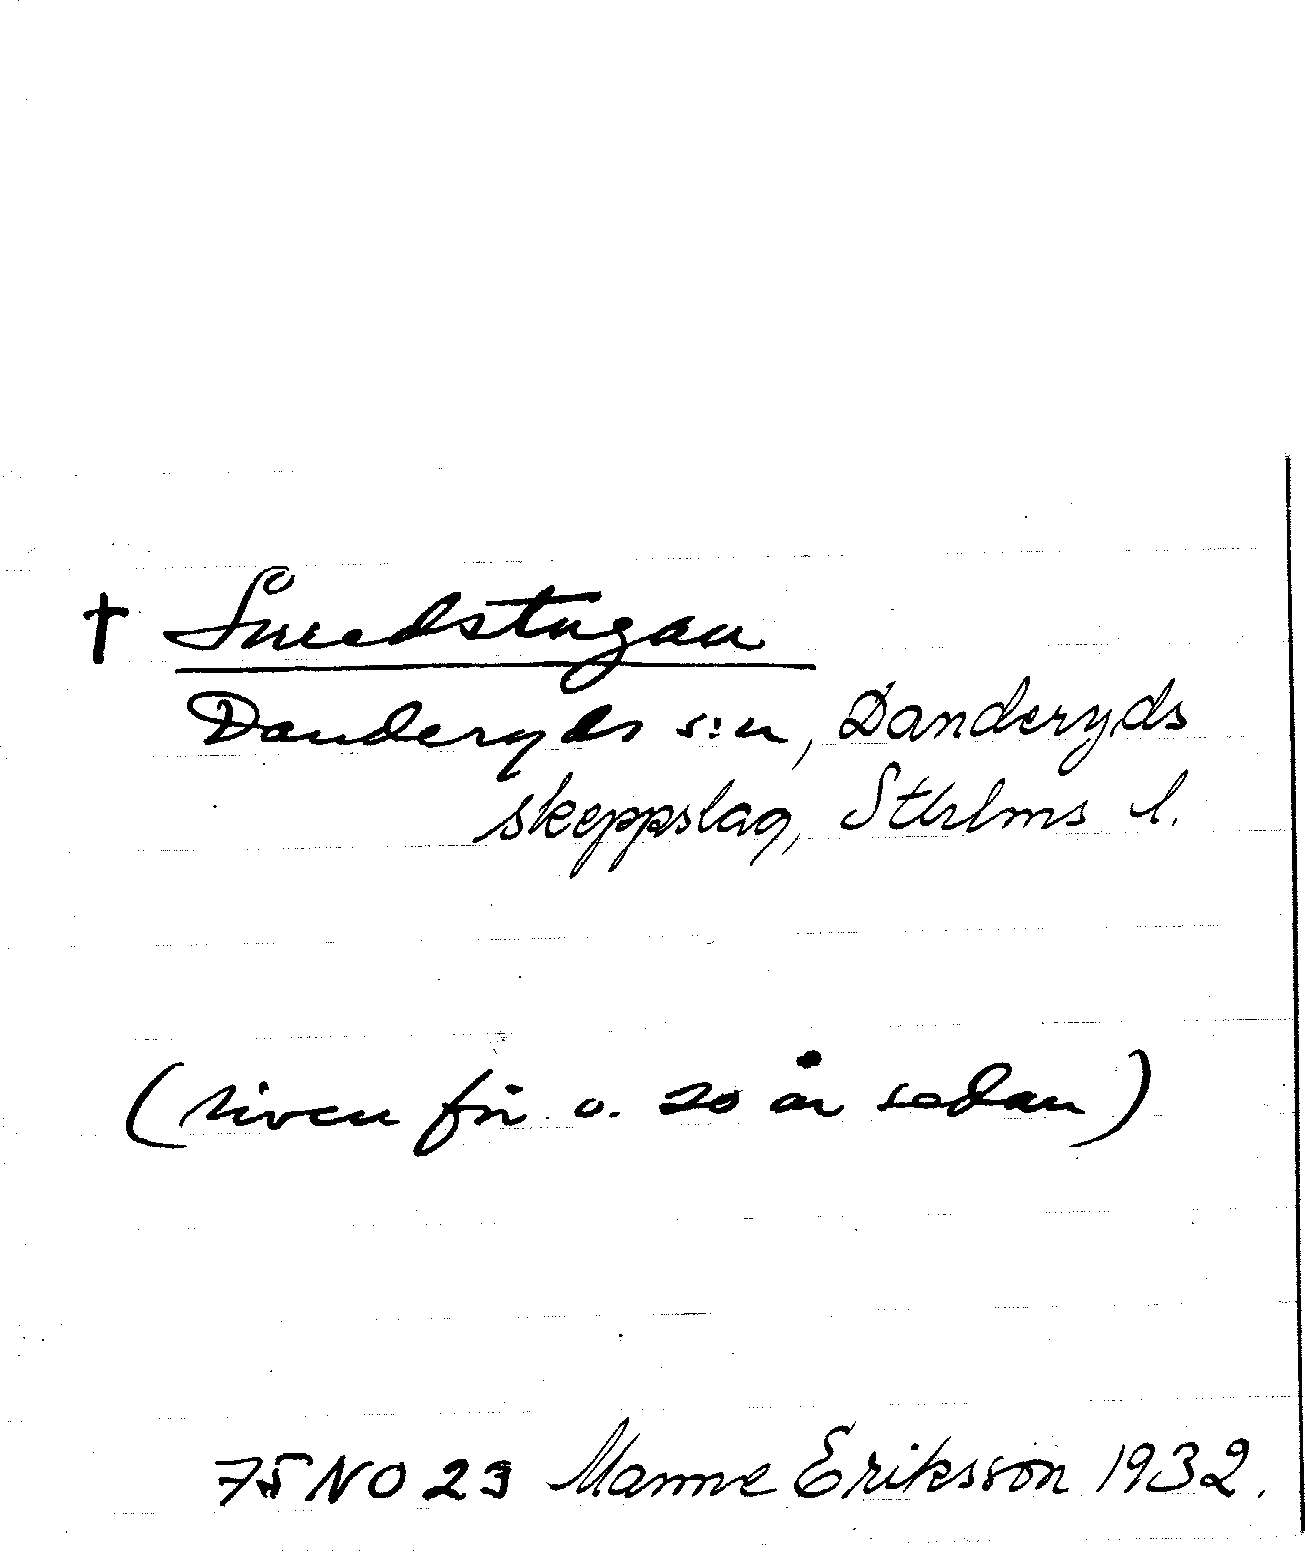 † Smedstugan
Danderyds s:n, Danderyds
skeppslag, Sthlms l.
(riven för o. 20 år sedan)
75 NO 23 Manne Eriksson 1932.